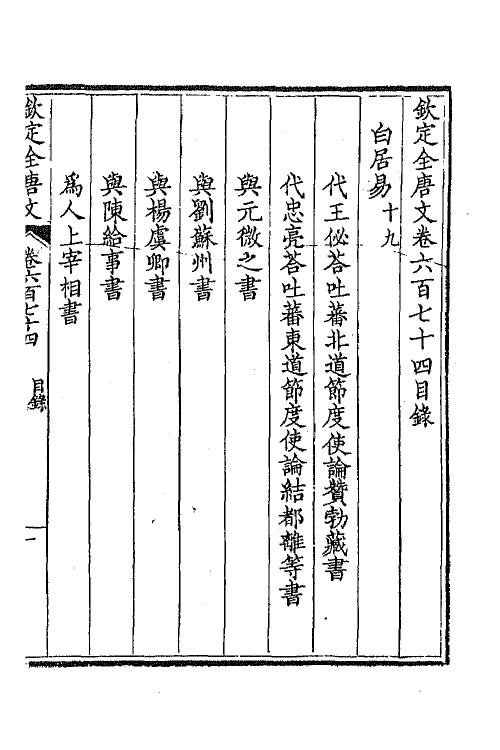 欽定全唐文卷六百七十四目錄
白居易十九
代王佖荅吐蕃北道節度使論贊勃藏書
代忠亮荅吐蕃東道節度使論結都離等書
與元微之書
與劉蘇州書
與楊虞卿書
與陳給事書
為人上宰相書
欽定全唐文 卷六百七十四 目錄 一